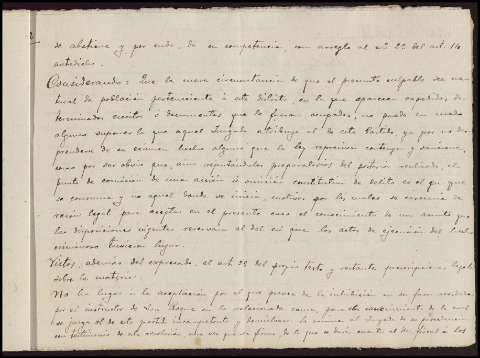 de abstiene y por ende, de su competencia, con arreglo al nº 2º del art. 14
antedicho.
Considerando: Que la mera circunstancia de que el presunto culpable sea na-
tural de población perteneciente á este distrito, en la que aparecen expedidos de-
terminados escritos ó documentos que le fueron ocupados, no puede en modo
alguno suponer lo que aquel Juzgado atribuye al de este Partido, ya por no des-
prenderse de su examen hecho alguno que la ley repruebe, castigue y sancione,
como por ser obvio que, aun reputándolos preparatorios del posterior realizado, el
punto de comisión de una acción ú omisión constitutiva de delito es el en que
se consuma y no aquel donde se inicia, motivos por los cuales se carecería de
razón legal para aceptar en el presente caso el conocimiento de un asunto que
las disposiciones vigentes reservan al del en que los actos de ejecución del hecho
criminoso tuvieron lugar.
Vistos, además del expresado, el art. 25 del propio texto y restantes prescripciones legales
sobre la materia.
No ha lugar á la aceptación por el que provee de la inhibición en su favor acordada
por el instructor de San Roque en la relacionada causa, para conocimiento de la cual
se juzga el de este partido incompetente y devuélvase la misma al Juzgado de su procedencia
con testimonio de esta resolución, una vez que sea firme, de la que se dará cuenta al Sr. Fiscal á los